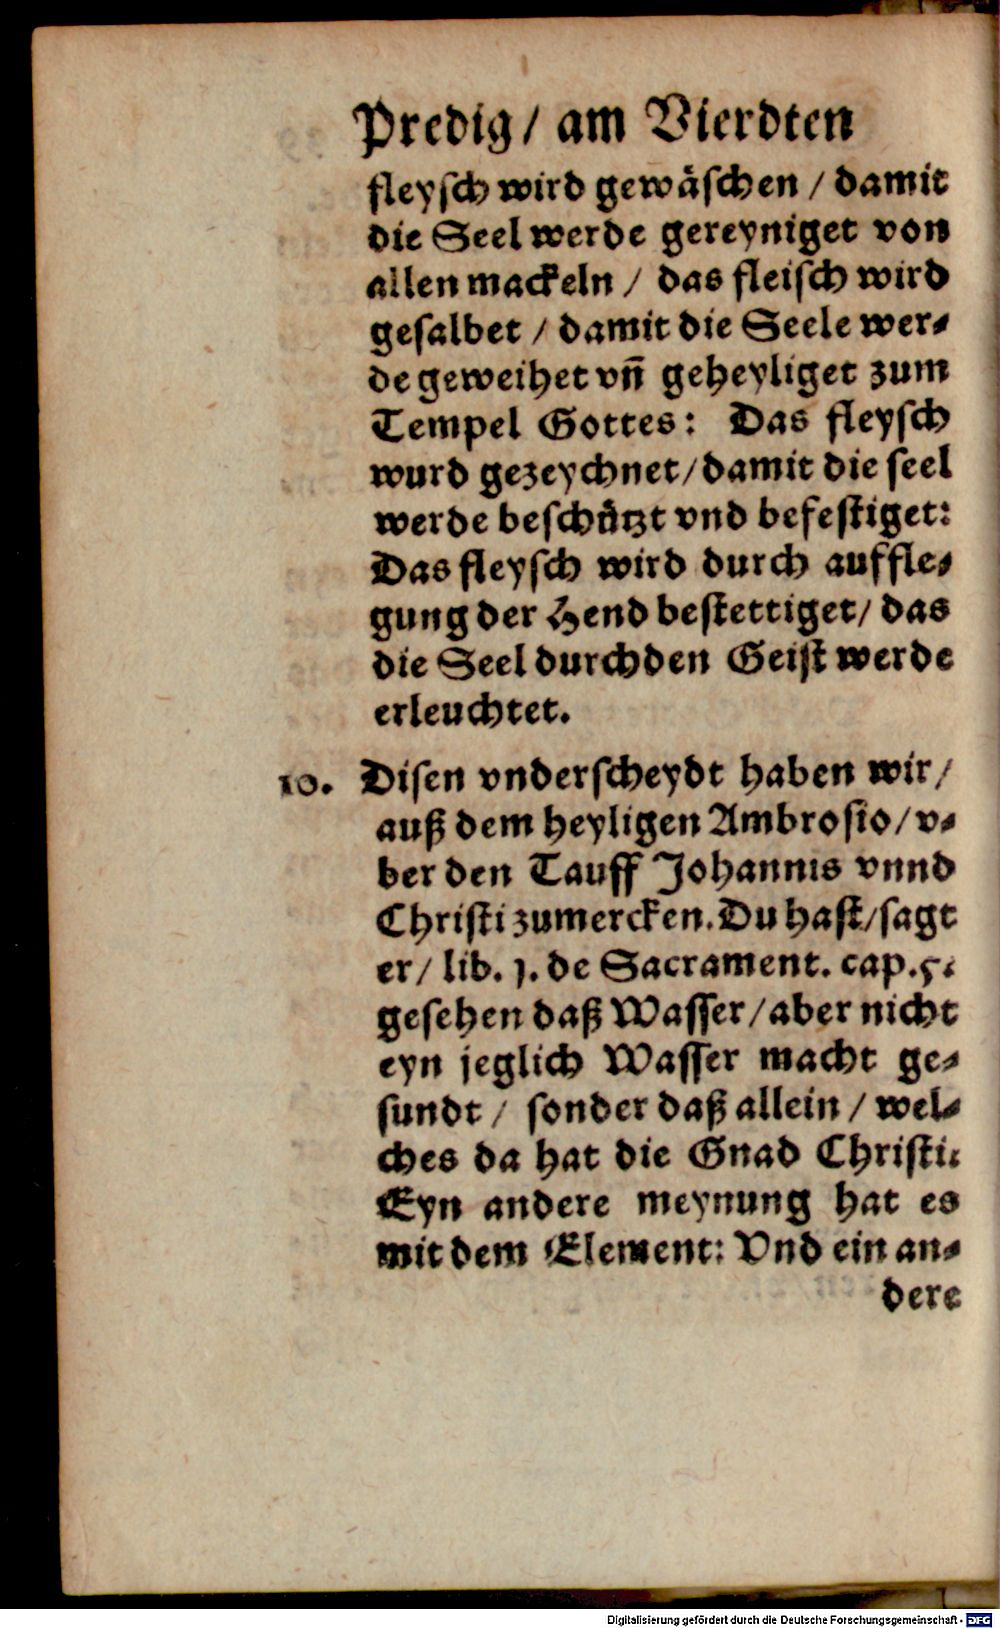 Predig/ am Vierdten
fleysch wird gewäschen / damit
die Seel werde gereyniget von
allen mackeln / das fleisch wird
gesalbet / damit die Seele wer⸗
de geweihet vñ geheyliget zum
Tempel Gottes: Das fleysch
wurd gezeychnet/ damit die seel
werde beschützt vnd befestiget:
Das fleysch wird durch auffle⸗
gung der Hend bestettiget/ das
die Seel durch den Geist werde
erleuchtet.
10. Disen vnderscheydt haben wir/
auß dem heyligen Ambrosio/ v⸗
ber den Tauff Johannis vnnd
Christi zumercken. Du hast/ sagt
er/ lib. 1. de Sacrament. cap. 5.
gesehen daß Wasser/ aber nicht
eyn jeglich Wasser macht ge⸗
sundt / sonder daß allein / wel⸗
ches da hat die Gnad Christi:
Eyn andere meynung hat es
mit dem Element: Vnd ein an⸗
dere
Digitalisierung gefördert durch die Deutsche Forschungsgemeinschaft - DFG